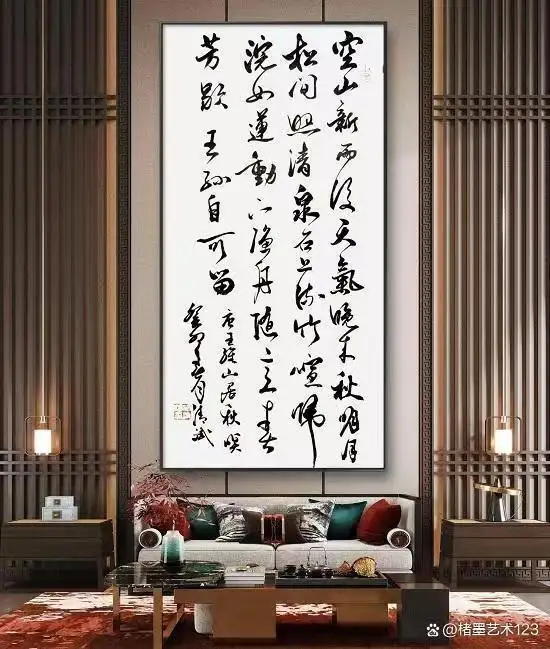 空山新雨後天氣晚来秋明月
松间照清泉石上流竹喧歸
浣女蓮動下渔舟随意春
芳歇王孙自可留
唐王维山居秋暝
癸卯
@楮墨艺术123